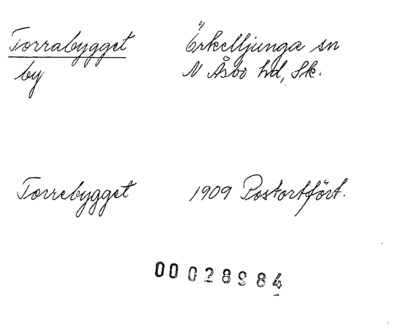 Torrabygget Örkelljunga sn
by N Åsbo hd, Sk.
Torrebygget 1909 Postortfört.
00028984